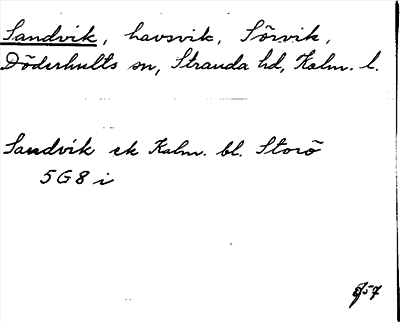 Sandvik, havsvik, Sörvik,
Döderhults sn, Stranda hd, Kalm. l.
Sandvik ek Kalm. bl. Storö
5G8i